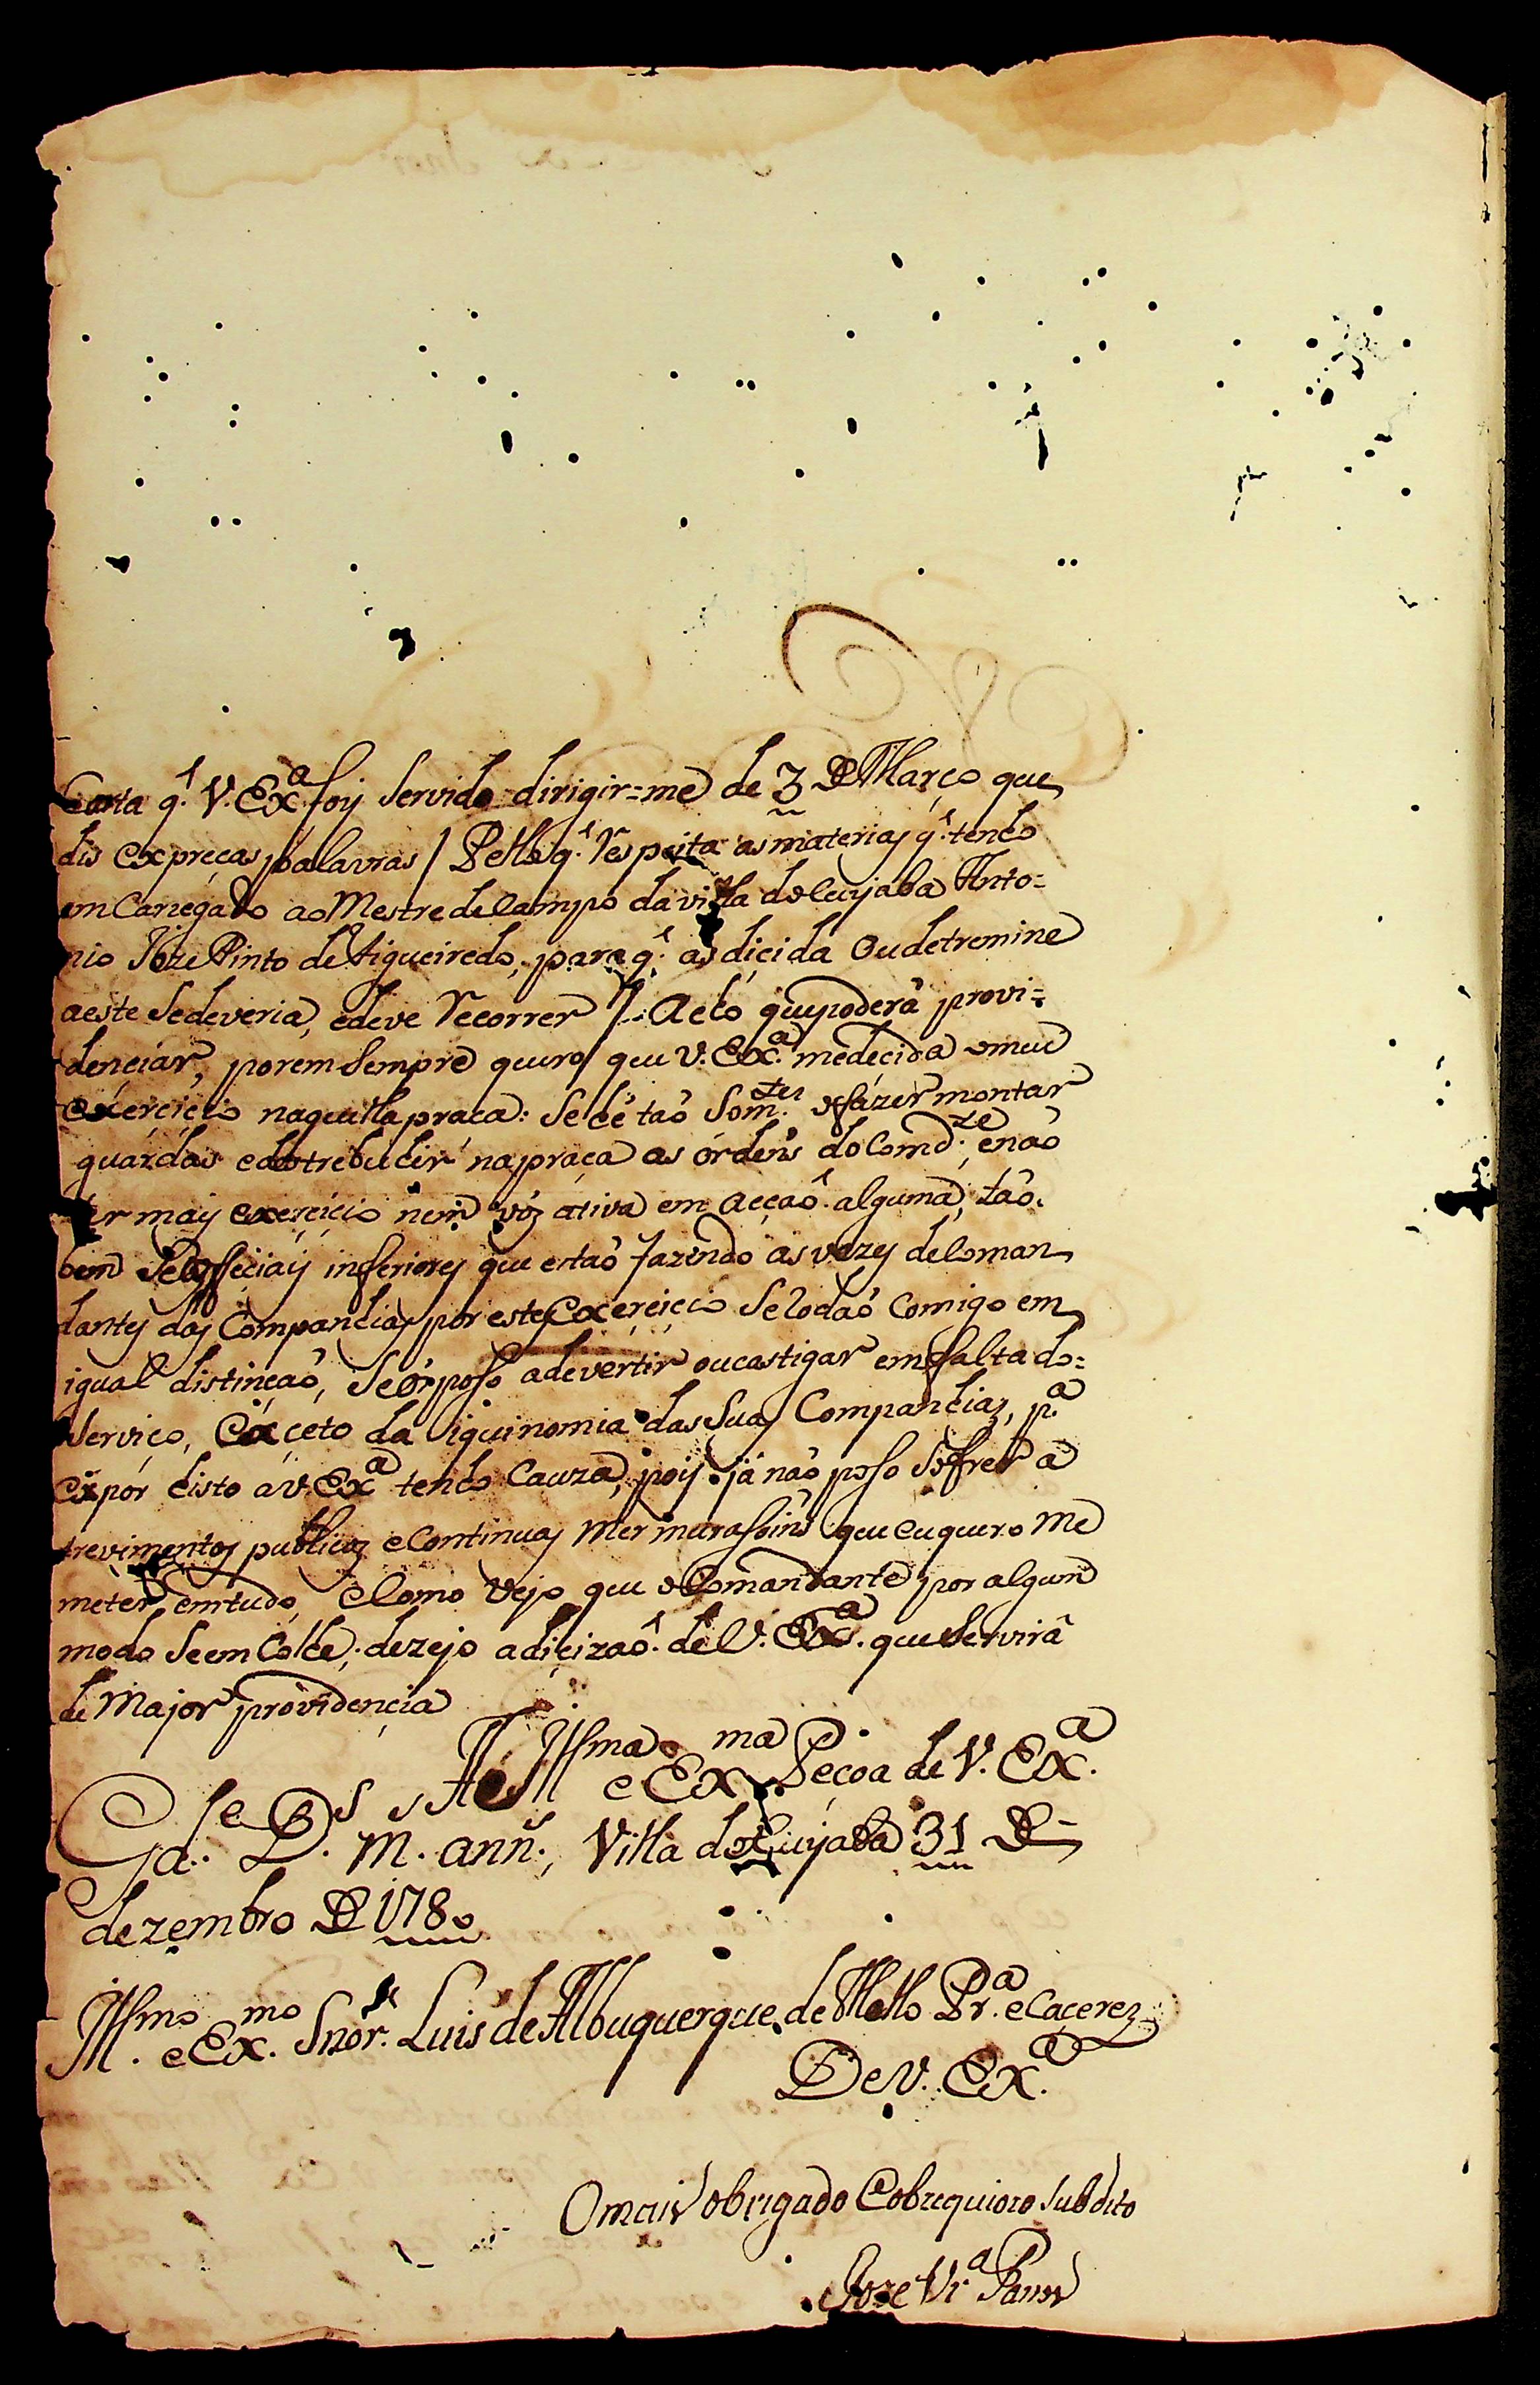 Carta q.̃ V. Ex.ª foy Servido dirigir=me de 3 de Março que
dis expreças palavras / Pello q.̃ respeita as materias q.̃ tenho
em Carregado ao Mestre de Campo da villa do Cuyaba Anto=
nio Joze Pinto de Figueiredo, para q.̃ as diçida ou detremine
a este Sedeveria, edeve recorrer /. Acho que poderâ provi=
denciar, porem Sempre quero que V. Ex.ª medecida omeu
exerciçio naquella praca: Se hé taõ Som.tes o fázer montar
guárdas edestrebuhir na praça as órdens do Comd.te, enaõ
ter mays exerçiçio nem vóz ativa em Acçaõ alguma, taõ
bem Se os offeçiays inferiores que estaõ fazendo as vezes de Coman
dantes das Companhias por este Exerciçio Se lodaõ Comigo em
igual distinçaõ, Se ós poso adevertir oucastigar emfalta do=
Serviço, Exçeto da iquinomia das Suas Companhias, p.ª
Expór histo a V. Ex.ª tenho Cauza, poys já naõ poso Sofrer a
trevimentos publicos e Continuas mermurasoins que euquero me
meter emtudo, e Como vejo que o Comandante por algum
modo Seem Colhe, dezejo a diçizaõ de V. Ex.ª que Servirâ
de Major providençia
A Ill.ma e Ex.ma Peçoa de V. Ex.ª
G.de D.s m. ann.s, Villa do Cuyaba 31 de
dezembro de 1780
Ill.mo e Ex.mo Snór. Luis de Albuquerque de Mello Pr.ª e Caçerez
De V. Ex.ª
O mais obrigado e obzequiozo Subdito
Joze Vi.ª